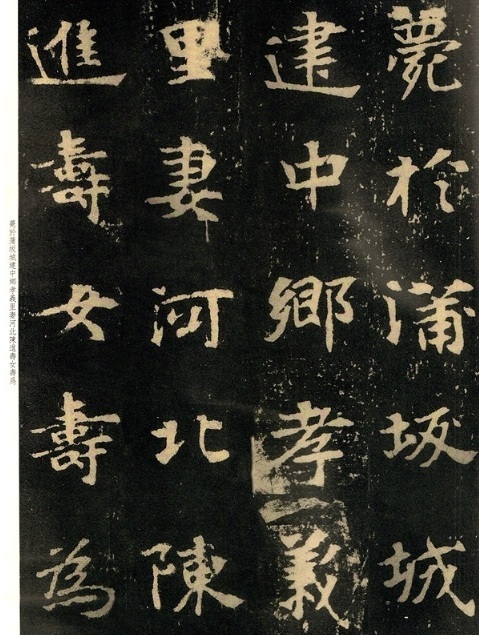 薨於蒲坂城
建中鄉孝義
里妻河北陳
進壽女壽為
薨於蒲坂城建中鄉孝義里妻河北陳進壽女壽為